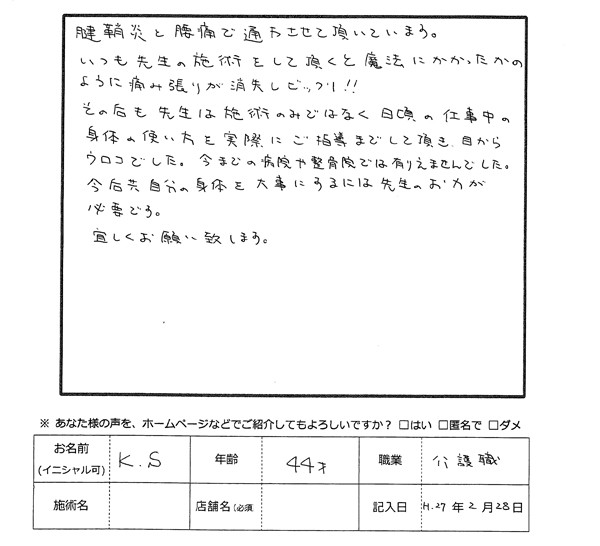 腱鞘炎と腰痛で通わせて頂いています。
いつも先生の施術をして頂くと魔法にかかったかの
ように痛み張りが消失しビックリ!!
その后も先生は施術のみではなく日頃の仕事中の
身体の使い方を実際にご指導までして頂き、目から
ウロコでした。今までの病院や整骨院では有りえませんでした。
今后共自分の身体を大事にするには先生のお力が
必要です。
宜しくお願い致します。
※ あなた様の声を、ホームページなどでご紹介してもよろしいですか？ □はい □匿名で □ダメ
お名前 (イニシャル可) K.S 年齢 44才 職業 介護職
施術名 店舗名（必須 記入日 H.27年2月28日